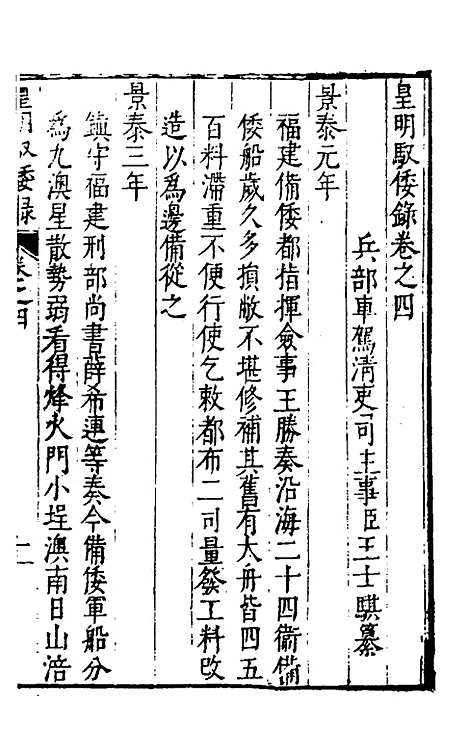 皇明馭倭錄卷之四
兵部車駕清吏司主事臣王士騏纂
景泰元年
福建備倭都指揮僉事王勝奏沿海二十四衛備
倭船歲久多損敝不堪修補其舊有大舟皆四五
百料滯重不便行使乞敕都布二司量發工料改
造以為邊備從之
景泰三年
鎮守福建刑部尚書薛希璉等奏今備倭軍船分
為九澳星散勢弱看得烽火門小埕澳南日山浯
皇明馭倭錄 卷之四 一